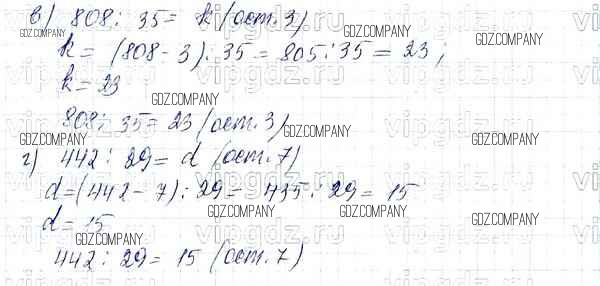 в) 808 : 35 = k (ост. 3)
k = (808 - 3) : 35 = 805 : 35 = 23 ;
k = 23
808 : 35 = 23 (ост. 3)
г) 442 : 29 = d (ост. 7)
d = (442 - 7) : 29 = 435 : 29 = 15
d = 15
442 : 29 = 15 (ост. 7)
GDZ.COMPANY
GDZ.COMPANY
GDZ.COMPANY
GDZ.COMPANY
GDZ.COMPANY
GDZ.COMPANY
GDZ.COMPANY
GDZ.COMPANY
GDZ.COMPANY
GDZ.COMPANY
GDZ.COMPANY
GDZ.COMPANY
vipgdz.ru
vipgdz.ru
vipgdz.ru
vipgdz.ru